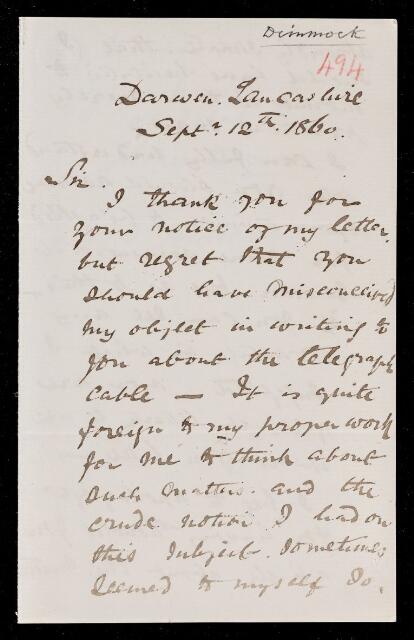 Dimmock
494
Darwen. Lancashire
Septr. 12th. 1860.
Sir.
I thank you for
your notice of my letter,
but regret that you
should have misconceived
my object in writing to
you about the telegraph
cable — It is quite
foreign to my proper work
for me to think about
such matters. and the
crude notion I had on
this subject. sometimes
seemed to myself so.